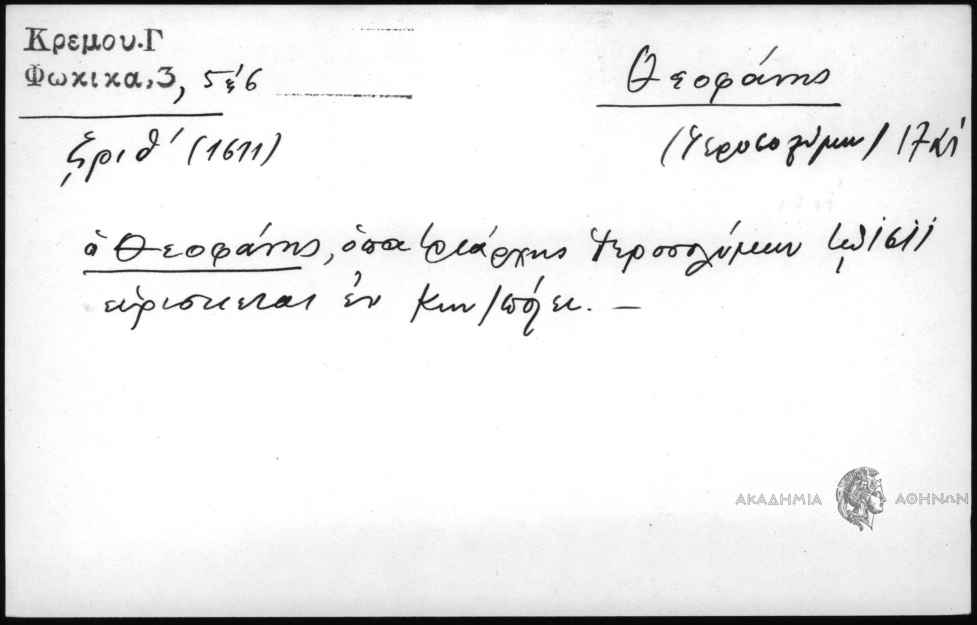 Κρεμου.Γ
Φωκικα,3, 5 ἑ 6
Θεοφάνης
ζριθ´ (1611)
(Ἱεροσολύμων) 17 αἰ
ὁ Θεοφάνης, ὁ πατριάρχης Ἱεροσολύμων τῷ 1611
εὑρίσκεται ἐν Κων/πόλει. —
ΑΚΑΔΗΜΙΑ ΑΘΗΝΩΝ